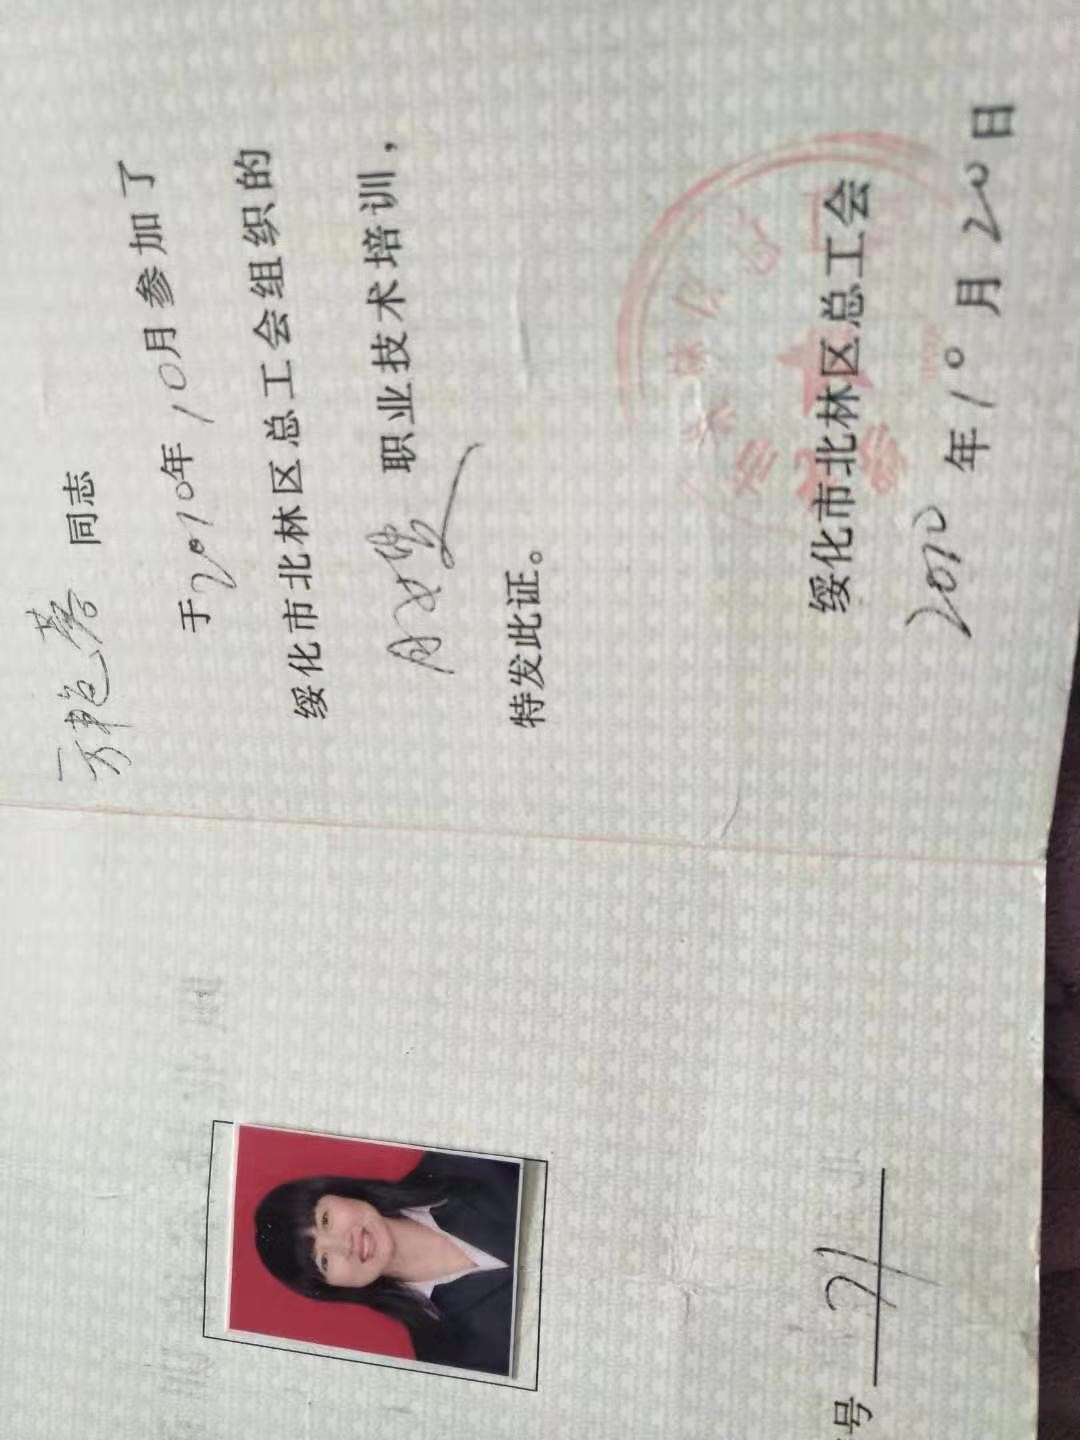 方艳蓉 同志
于2010年10月参加了
绥化市北林区总工会组织的
月嫂 职业技术培训，
特发此证。
绥化市北林区总工会
2010年10月20日
号 21